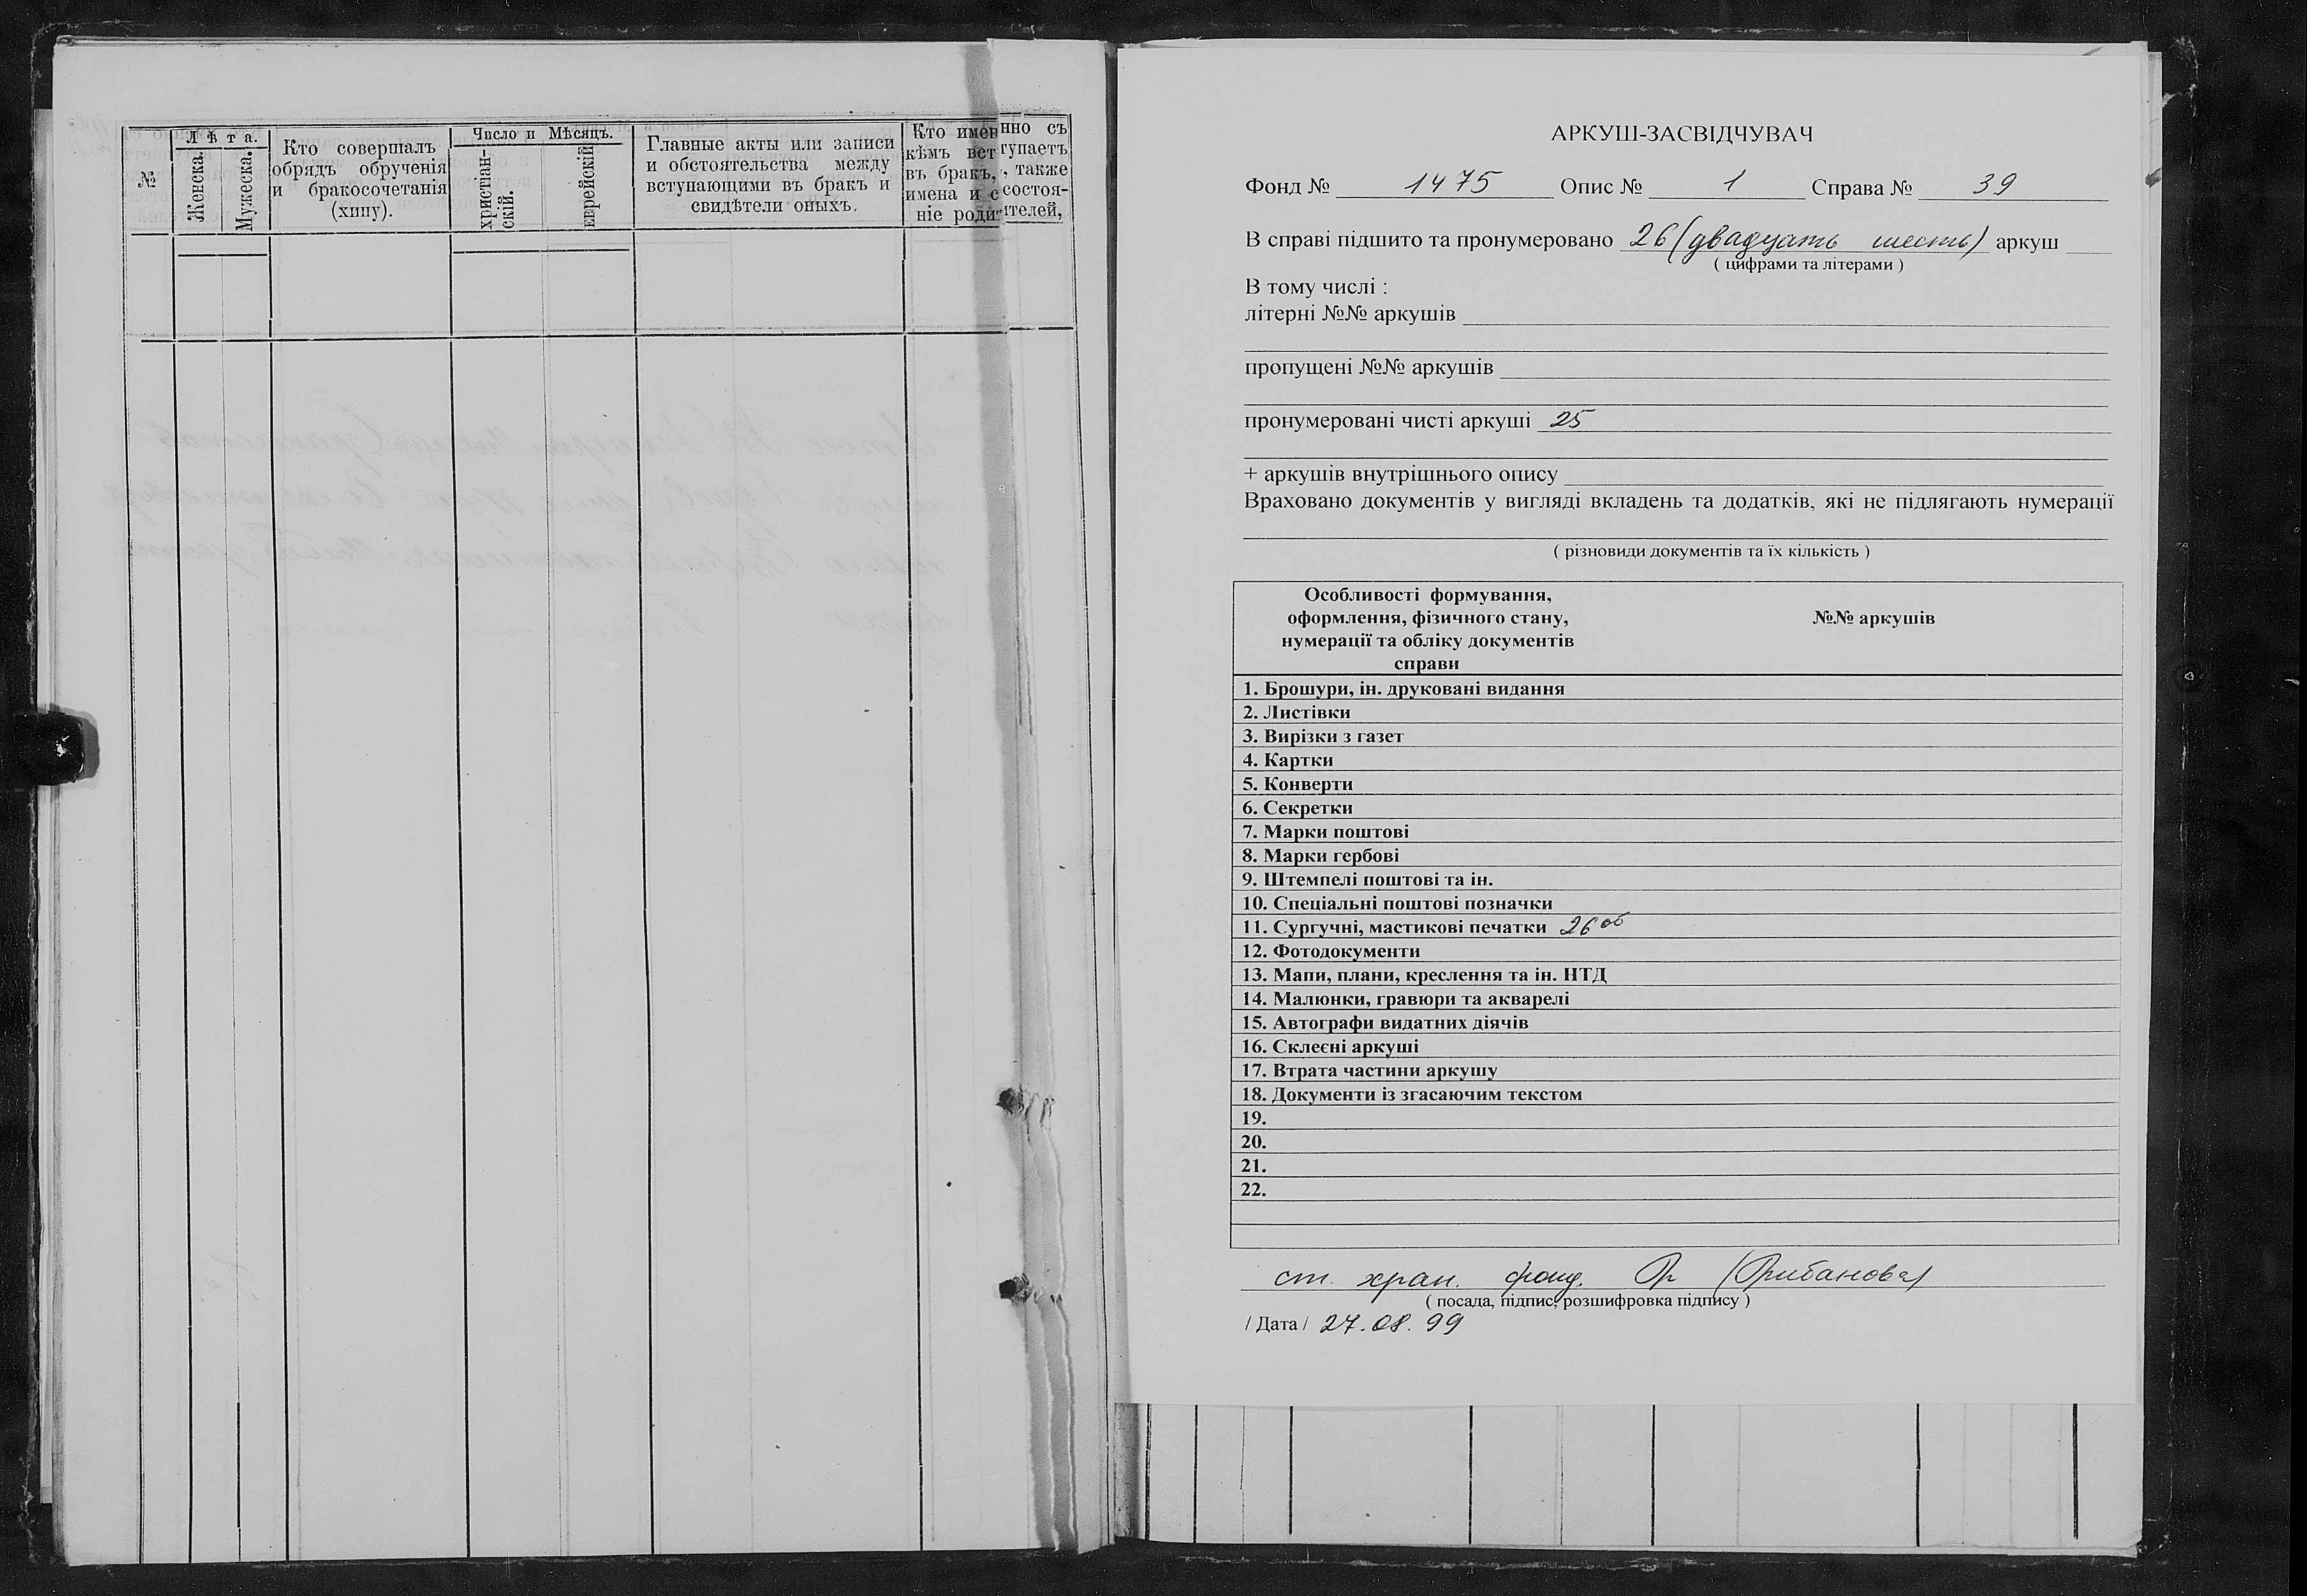 №
Лѣта.
Женска.
Мужеска.
Кто совершалъ
обрядъ обрученія
и бракосочетанія
(хипу).
Число и Мѣсяцъ.
христіан-
скій.
еврейскій
Главные акты или записи
и обстоятельства между
вступающими въ бракъ и
свидѣтели оныхъ.
Кто именнно съ
кѣмъ вступаетъ
въ бракъ, также
имена и состоя-
ніе родителей,
АРКУШ-ЗАСВІДЧУВАЧ
Фонд № 1475 Опис № 1 Справа № 39
В справі підшито та пронумеровано 26 (двадцать шесть) аркуш
( цифрами та літерами )
В тому числі :
літерні №№ аркушів
пропущені №№ аркушів
пронумеровані чисті аркуші 25
+ аркушів внутрішнього опису
Враховано документів у вигляді вкладень та додатків, які не підлягають нумерації
( різновиди документів та їх кількість )
Особливості формування,
оформлення, фізичного стану,
нумерації та обліку документів
справи
№№ аркушів
1. Брошури, ін. друковані видання
2. Листівки
3. Вирізки з газет
4. Картки
5. Конверти
6. Секретки
7. Марки поштові
8. Марки гербові
9. Штемпелі поштові та ін.
10. Спеціальні поштові позначки
11. Сургучні, мастикові печатки 26 об
12. Фотодокументи
13. Мапи, плани, креслення та ін. НТД
14. Малюнки, гравюри та акварелі
15. Автографи видатних діячів
16. Склеєні аркуші
17. Втрата частини аркушу
18. Документи із згасаючим текстом
19.
20.
21.
22.
ст. хран. фонд. (Грибанова)
( посада, підпис, розшифровка підпису )
/ Дата / 27.08.99